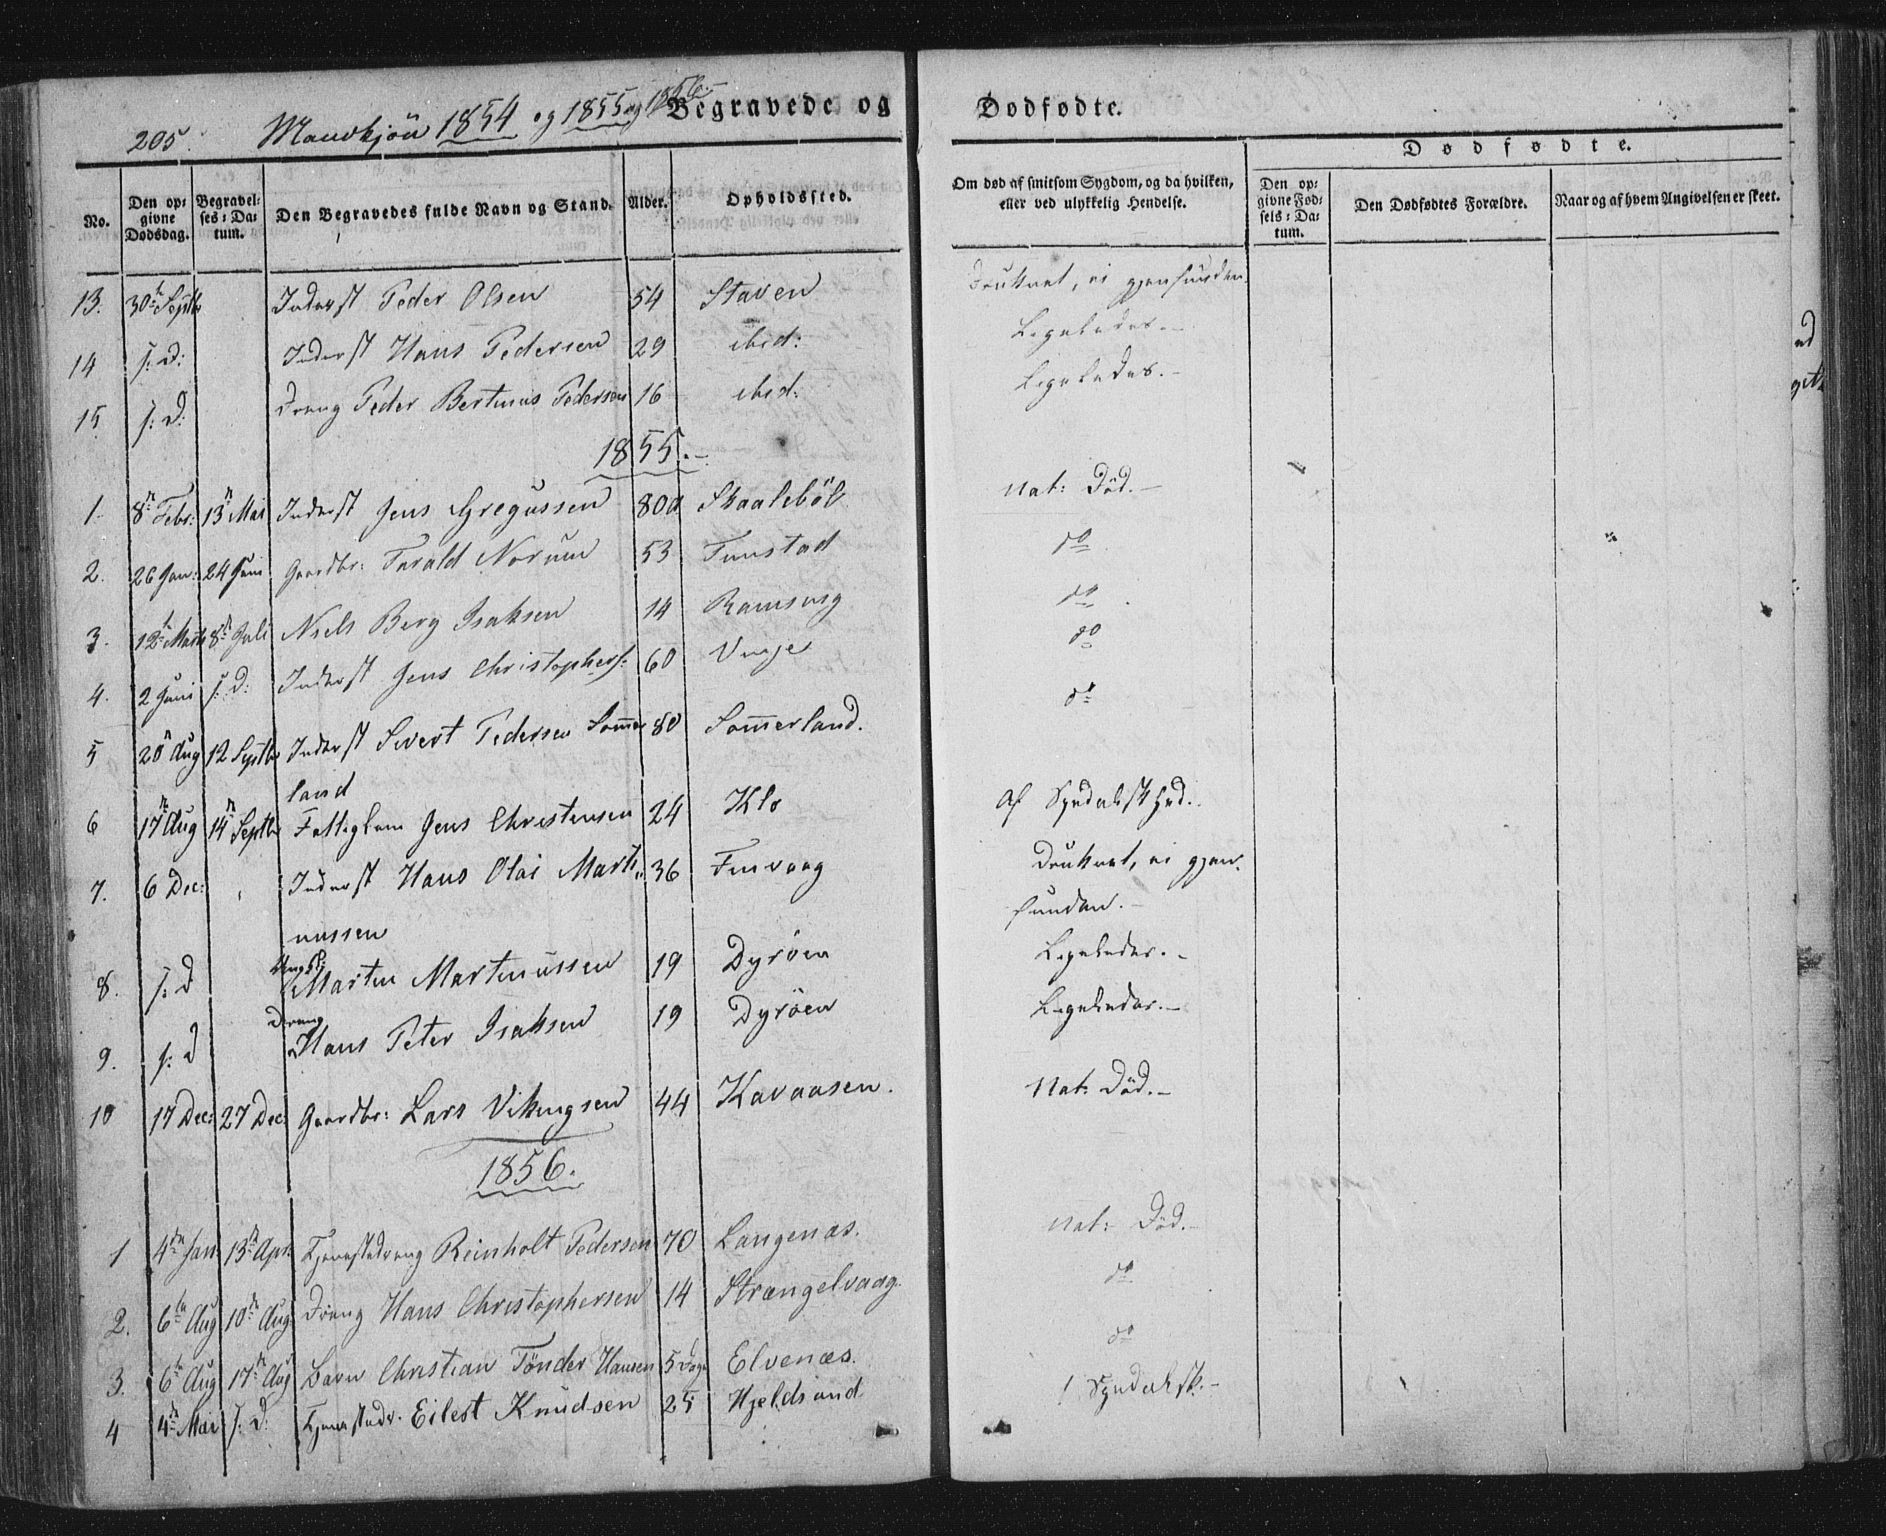 205. Mandkjön 1854 og 1855 og 1856. Begravede og Dødfødte.
Dødfødte.
No. Den opgivne Dødsdag. Begravelses-Datum. Den Begravedes fulde Navn og Stand. Alder. Opholdssted. Om død af smitsom Sygdom, og da hvilken, eller ved ulykkelig Hendelse. Den opgivne Fødsels-Datum. Den Dødfødtes Forældre. Naar og af hvem Angivelsen er skeet.
13. 30te Septbr Inderst Peder Olsen 54 Staven Druknet, ei gjenfunden
14 s: D: Inderst Hans Pedersen 29 ibid: Ligeledes.-
15 s: D: Dreng Peder Bertinus Pedersen 16 ibid: Ligeledes.-
1855.-
1. 8de Febr: 13de Mai Inderst Jens Gregussen 80 Skaaleböl Nat: Död.-
2. 26 Jan: 24 Juni Gaardbr: Tarald Norum 53 Tunstad do
3. 12te Marts 8de Juli Niels Berg Isaksen 14 Ramsvig do
4. 2 Juni s: D: Inderst Jens Christophers: 60 Vinje do
5 20 Aug 12 Septbr Inderst Sivert Pedersen Sommer 80 Sommerland. do
land
6 17de Aug 14de Septbr Fattiglem Jens Christensen 24 Klo Af Spedalskhed.
7. 6 Dec: Inderst Hans Olai Marti 36 Finvaag Druknet, ei gjen
nussen funden.-
8. s: D Ungk: Martin Martinussen 19 Dyröen Ligeledes.-
9. s: D Dreng Hans Peter Isaksen 19 Dyröen Ligeledes.-
10 17 Dec: 27 Dec: Gaardbr: Lars Vikingsen 44 Kavaasen. Nat: Död.-
1856.
1 4de Jan: 13de Apr: Tjenestedreng Reinholt Pedersen 70 Langenæs. Nat: Död.-
2. 6te Aug 10de Aug Dreng Hans Christophersen 14 Strængelvaag do
3. 6te Aug 17de Aug Barn Christian Tönder Hansen 5 Dage Elvenæs. do
4 4de Mai s: D: Tjenestedr. Eilert Knudsen 25 Hjeldsand Spedalsk.-